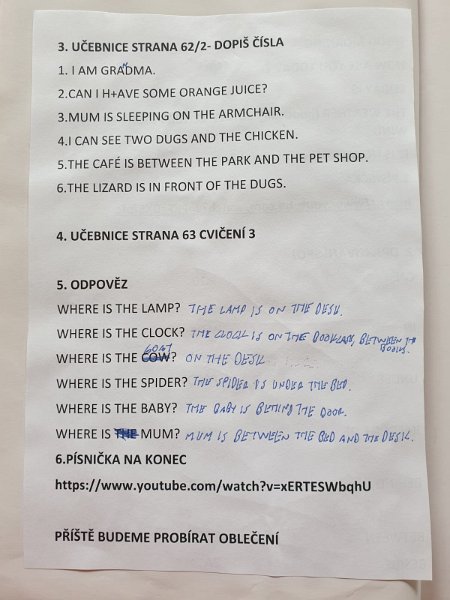 3. UČEBNICE STRANA 62/2- DOPIŠ ČÍSLA
1. I AM GRANDMA.
2.CAN I H+AVE SOME ORANGE JUICE?
3.MUM IS SLEEPING ON THE ARMCHAIR.
4.I CAN SEE TWO DUGS AND THE CHICKEN.
5.THE CAFÉ IS BETWEEN THE PARK AND THE PET SHOP.
6.THE LIZARD IS IN FRONT OF THE DUGS.
4. UČEBNICE STRANA 63 CVIČENÍ 3
5. ODPOVĚZ
WHERE IS THE LAMP? THE LAMP IS ON THE DESK.
WHERE IS THE CLOCK? THE CLOCK IS ON THE BETWEEN THE
GOAT
WHERE IS THE COW? ON THE DESK
WHERE IS THE SPIDER? THE SPIDER IS UNDER THE BED.
WHERE IS THE BABY? THE BABY IS BEHIND THE DOOR.
WHERE IS THE MUM? MUM IS BETWEEN THE BED AND THE DESK.
6.PÍSNIČKA NA KONEC
https://www.youtube.com/watch?v=xERTESWbqhU
PŘÍŠTĚ BUDEME PROBÍRAT OBLEČENÍ